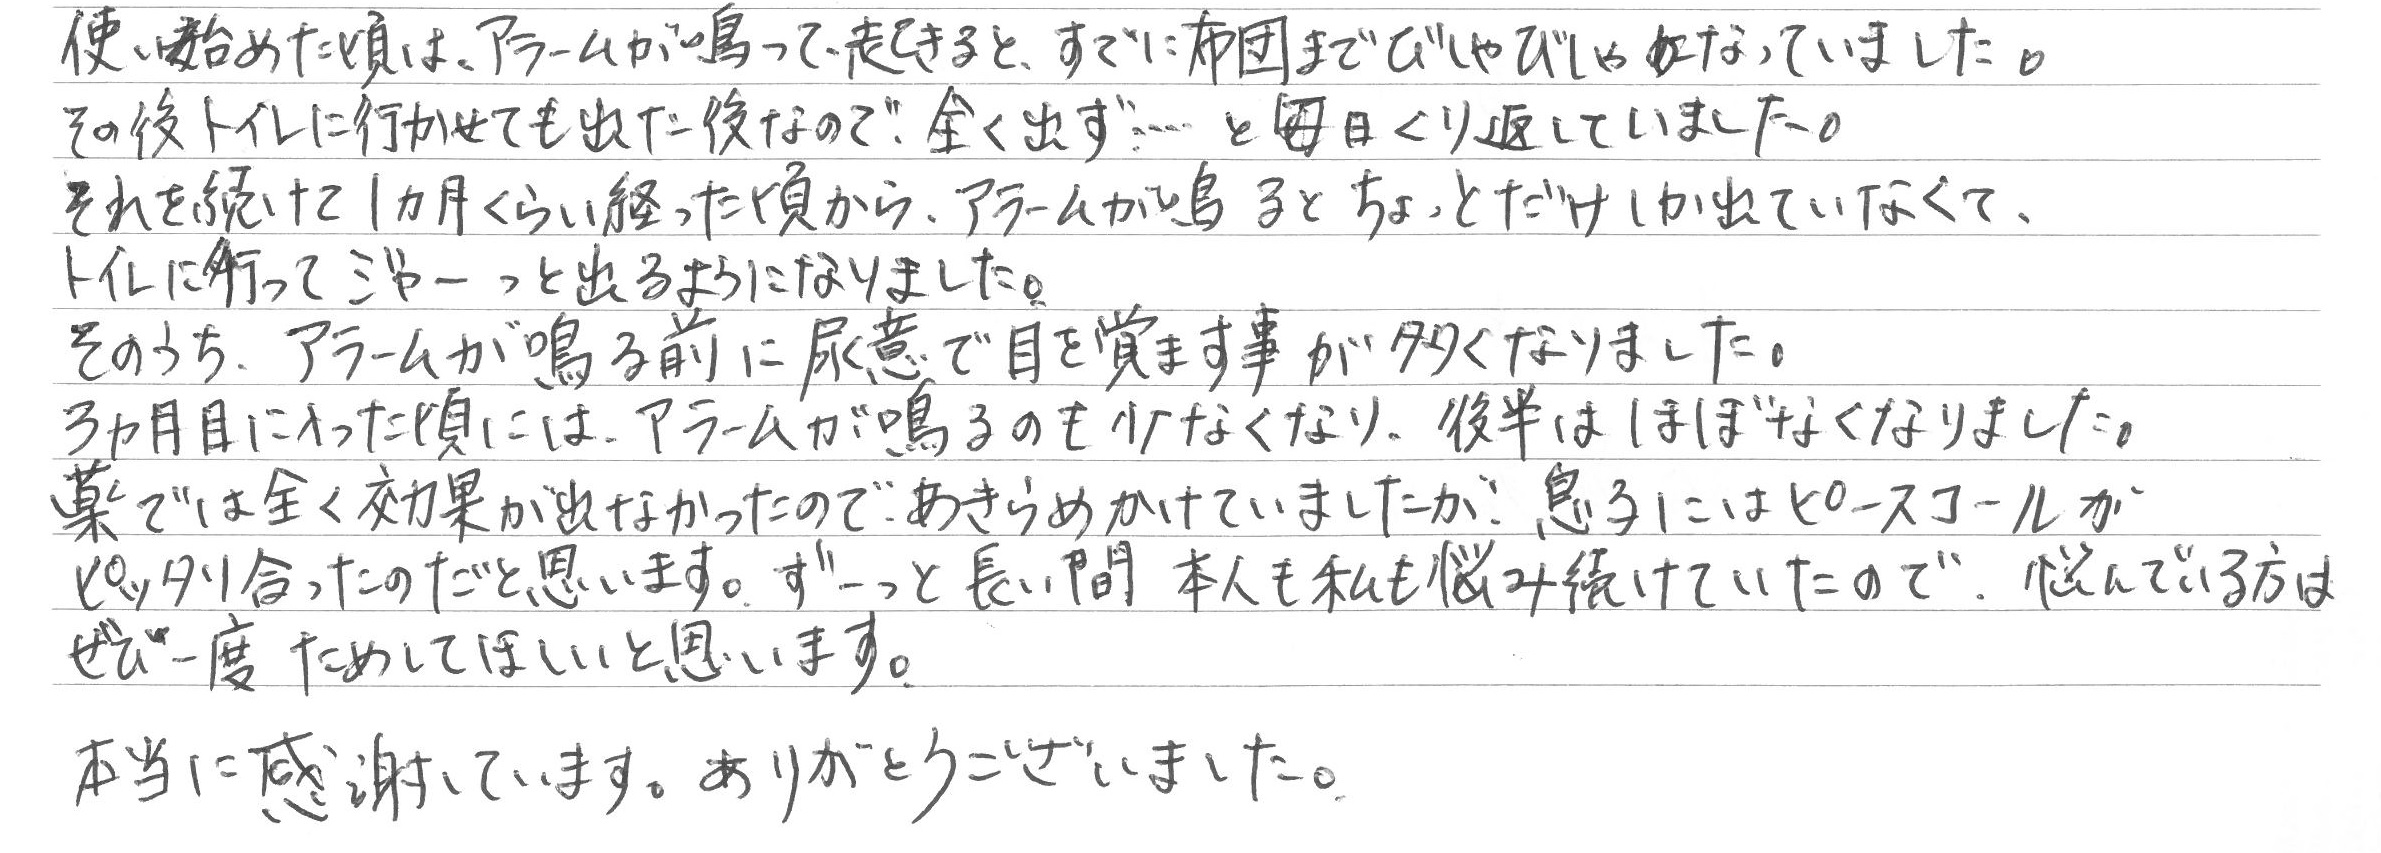 使い始めた頃は、アラームが鳴って、起きると、すでに布団までびしゃびしゃになっていました。
その後トイレに行かせても出た後なので、全く出ず……と毎日くり返していました。
それを続けて1カ月くらい経った頃から、アラームが鳴るとちょっとだけしか出ていなくて、
トイレに行ってジャーっと出るようになりました。
そのうち、アラームが鳴る前に尿意で目を覚ます事が多くなりました。
3ヵ月目に入った頃には、アラームが鳴るのも少なくなり、後半はほぼなくなりました。
薬では全く効果が出なかったので、あきらめかけていましたが、息子にはピースコールが
ピッタリ合ったのだと思います。ずーっと長い間 本人も私も悩み続けていたので、悩んでいる方は
ぜひ一度ためしてほしいと思います。
本当に感謝しています。ありがとうございました。